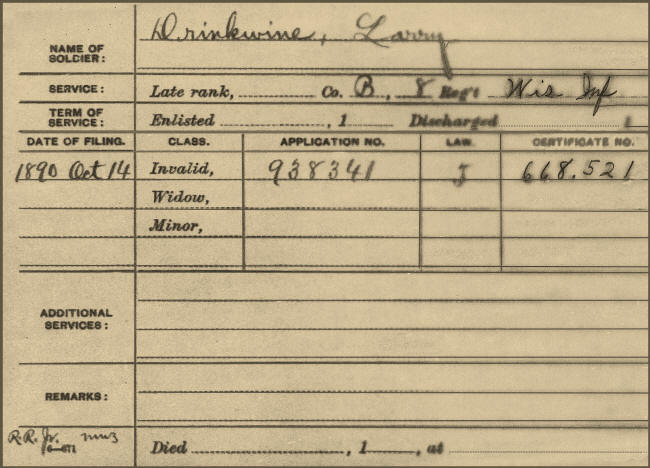 NAME OF SOLDIER: Drinkwine, Larry
SERVICE: Late rank, Co. B, 8 Reg't Wis Inf
TERM OF SERVICE: Enlisted , 1 Discharged 1
DATE OF FILING. CLASS. APPLICATION NO. LAW. CERTIFICATE NO.
1890 Oct 14 Invalid, 938341 J 668.521
Widow,
Minor,
ADDITIONAL SERVICES:
REMARKS:
R.R. Jr.
6—671
Died , 1 , at